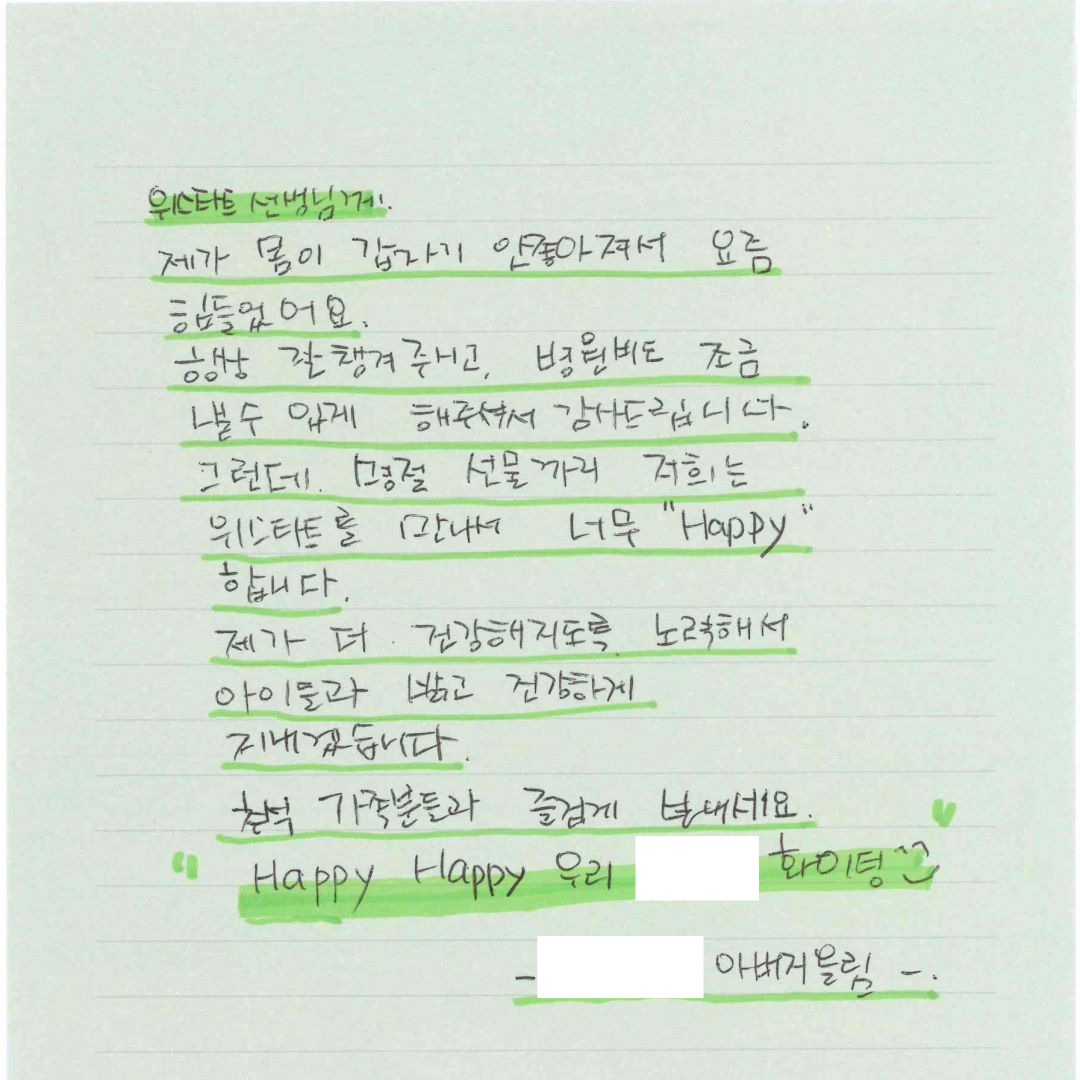 위스타트 선생님께.
제가 몸이 갑자기 안좋아져서 요즘
힘들었어요.
항상 잘챙겨주시고, 병원비도 조금
낼수 있게 해주셔서 감사드립니다.
그런데. 명절 선물까지 저희는
위스타트를 만나서 너무 "Happy"
합니다.
제가 더 건강해지도록 노력해서
아이들과 밝고 건강하게
지내겠습니다.
추석 가족분들과 즐겁게 보내세요.
"Happy Happy 우리 화이팅^^"
- 아버지올림 -.